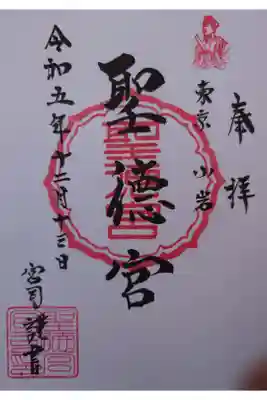 奉拝
東京 小岩
聖徳宮
令和五年十二月十三日
宮司 謹書